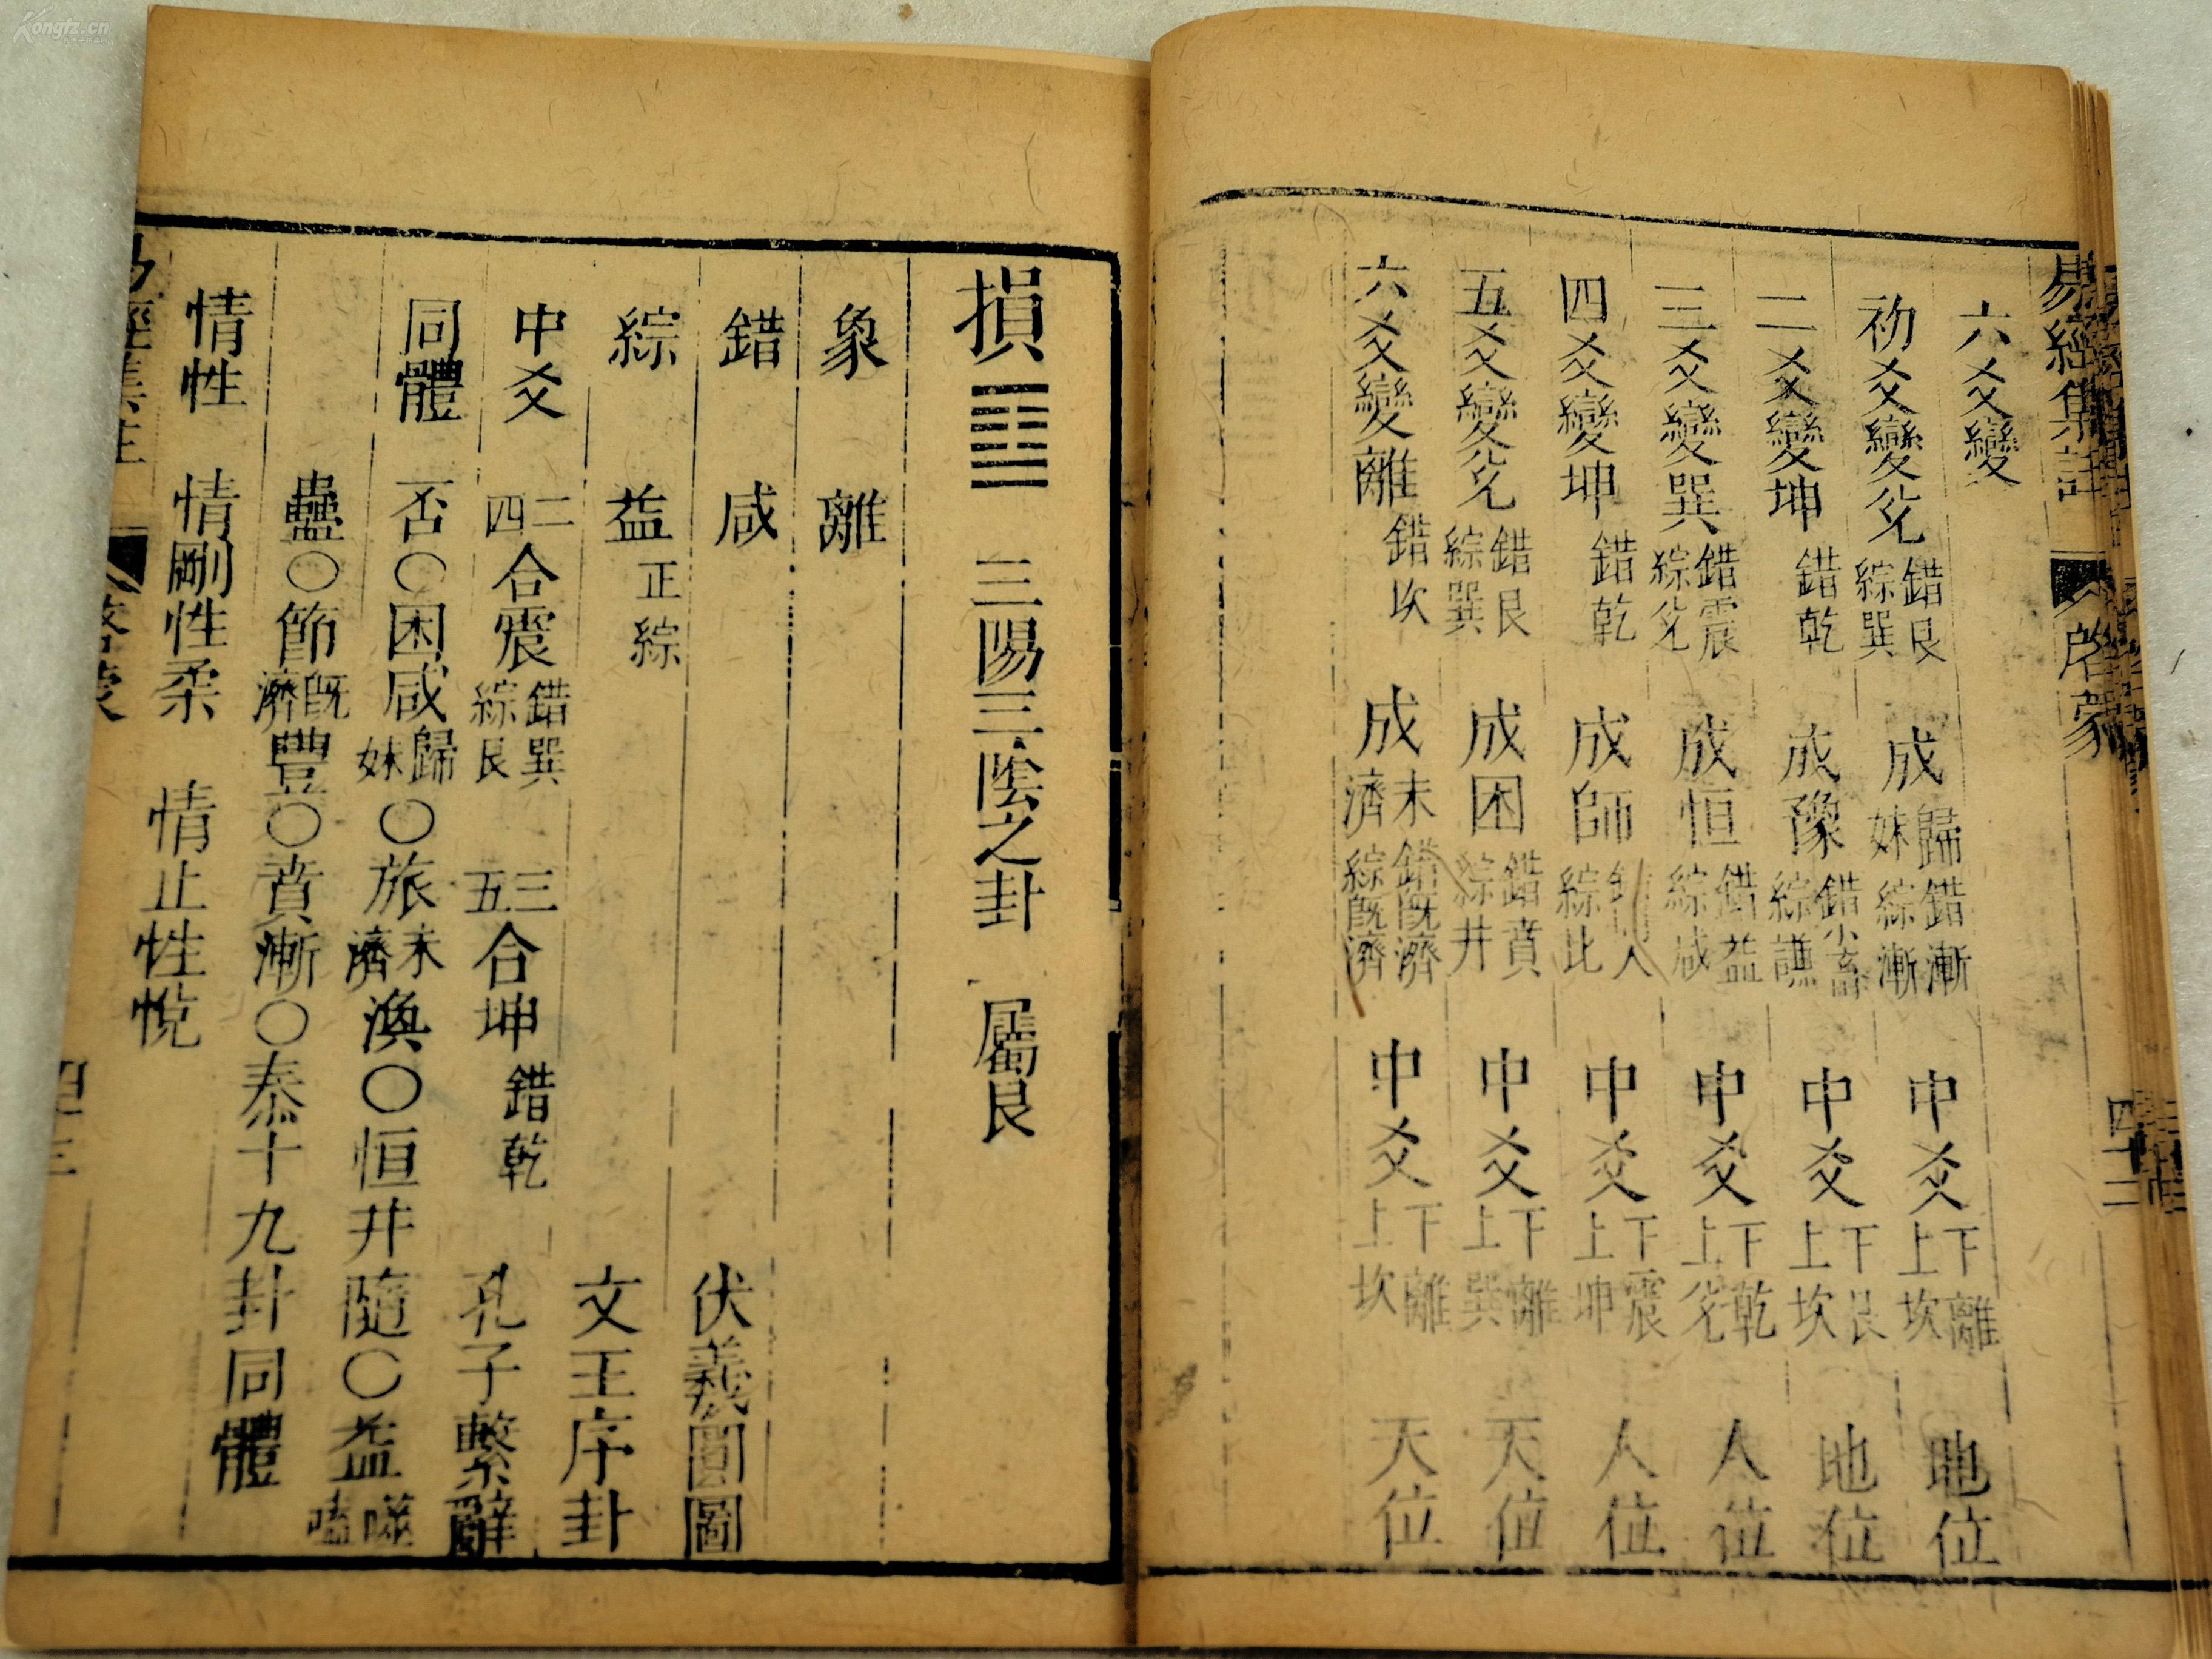 易經集註 啓蒙 四十二
六爻變
初爻變兊 錯艮 綜巽 成歸妹 錯漸 綜漸 中爻 下離 上坎 地位
二爻變坤 錯乾 成豫 錯小畜 綜謙 中爻 下艮 上坎 地位
三爻變巽 錯震 綜兊 成恒 錯益 綜咸 中爻 下乾 上兊 人位
四爻變坤 錯乾 成師 人 綜比 中爻 下震 上坤 人位
五爻變兊 錯艮 綜巽 成困 錯賁 綜井 中爻 下離 上巽 天位
六爻變離 錯坎 成未濟 錯既濟 綜既濟 中爻 下離 上坎 天位
損䷨ 三陽三陰之卦 屬艮
象 離
錯 咸 伏羲圓圖
綜 益 正綜 文王序卦
中爻 二四合震 錯巽 綜艮 三五合坤 錯乾 孔子繫辭
同體 否○困咸歸妹○旅未濟渙○恒井隨○益噬嗑
蠱○節既濟豐○賁漸○泰十九卦同體
情性 情剛性柔 情止性悅
易經集註 啓蒙 四十三
Kongfz.cn